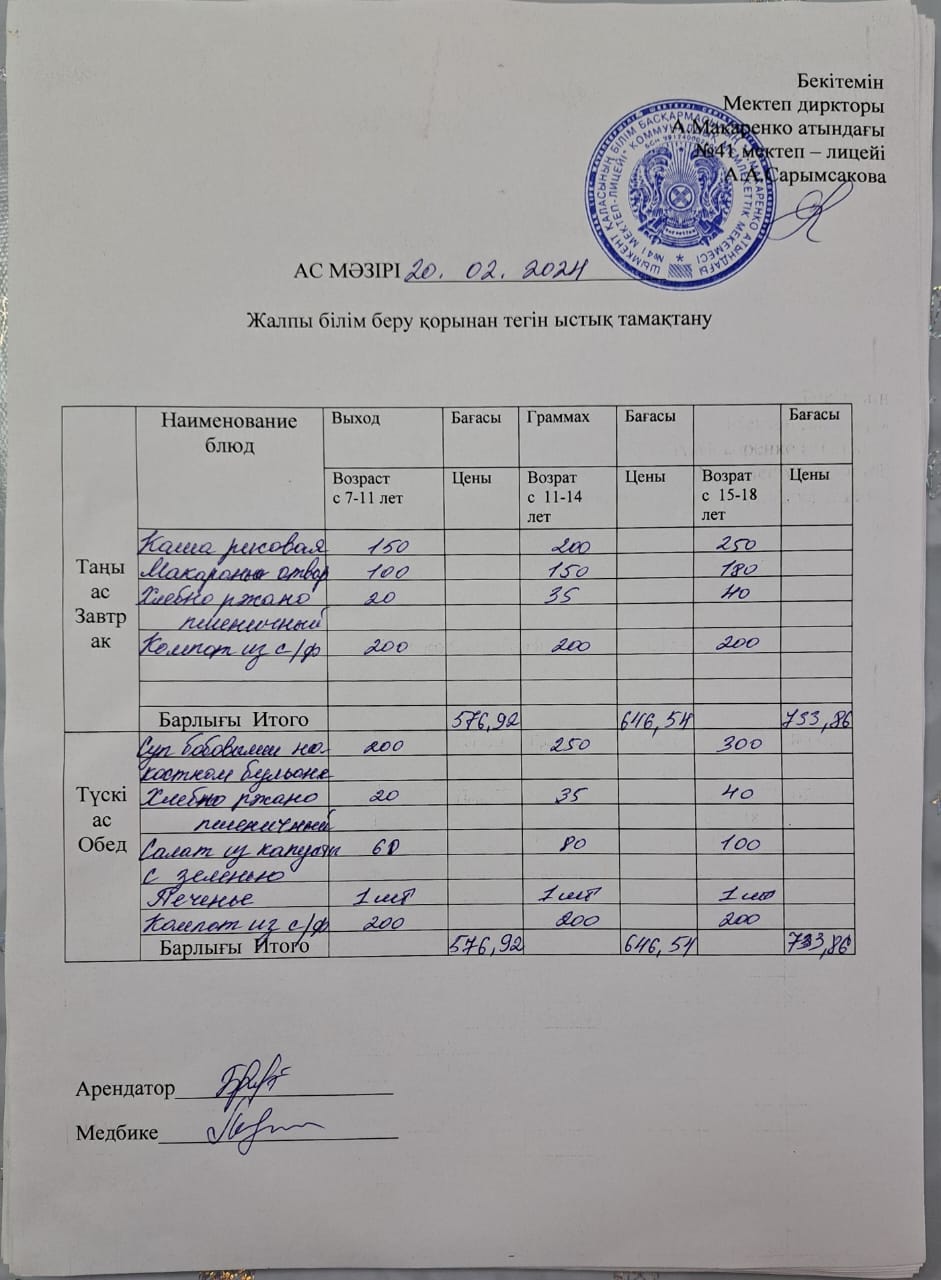 Бекітемін
Мектеп диркторы
А.Макаренко атындағы
№41 мектеп – лицейі
А.А.Сарымсакова
АС МӘЗІРІ 20. 02. 2024
Жалпы білім беру қорынан тегін ыстық тамақтану
Наименование блюд Выход Бағасы Граммах Бағасы Бағасы
Возраст с 7-11 лет Цены Возрат с 11-14 лет Цены Возрат с 15-18 лет Цены
Таңы ас Завтрак
Каша рисовая 150 200 250
Макароны отвар 100 150 180
Хлебно ржано 20 35 40
пшеничный
Компот из с/ф 200 200 200
Барлығы Итого 576,92 646,54 733,86
Түскі ас Обед
Суп бобовыми на 200 250 300
костном бульоне
Хлебно ржано 20 35 40
пшеничный
Салат из капусты 60 80 100
с зеленью
Печенье 1 шт 1 шт 1 шт
Компот из с/ф 200 200 200
Барлығы Итого 576,92 646,54 733,86
Арендатор
Медбике